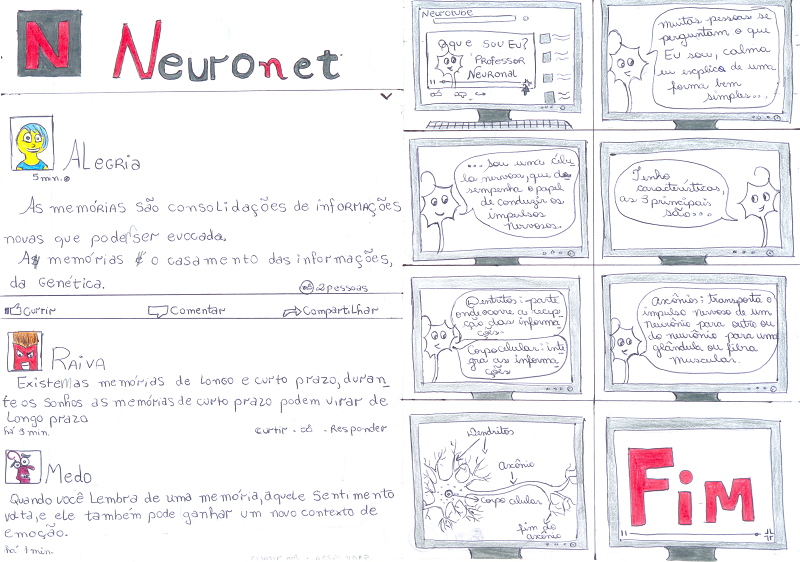 N
Neuronet
Alegria
5 mn.
As memórias são consolidações de informações
novas que podem ser evocada.
As memórias é o casamento das informações,
da Genética.
2 pessoas
Curtir
Comentar
Compartilhar
Raiva
Existem as memórias de longo e curto prazo, duran
te os sonhos as memórias de curto prazo podem virar de
Longo prazo
há 3 min.
Curtir - Responder
Medo
Quando você Lembra de uma memória, aquele sentimento
volta, e ele também pode ganhar um novo contexto de
emoção.
há 1 min.
Neurotube
O que sou Eu?
Professor
Neuronal
Muitas pessoas se
perguntam o que
Eu sou, calma
eu explico de uma
forma bem
simples...
... sou uma célu-
la nervosa, que de
sempenha o papel
de conduzir os
impulsos
nervosos.
Tenho
características,
as 3 principais
são...
Dentritos: parte
onde ocorre a recep-
ção das informa
ções.
Corpo celular: inte
gra as informa
ções
Axônios: transporta o
impulso nervoso de um
neurônio para outro ou
do neurônio para uma
glândula ou fibra
muscular.
Dendritos
Axônio
Corpo celular
fim do
axônio
Fim